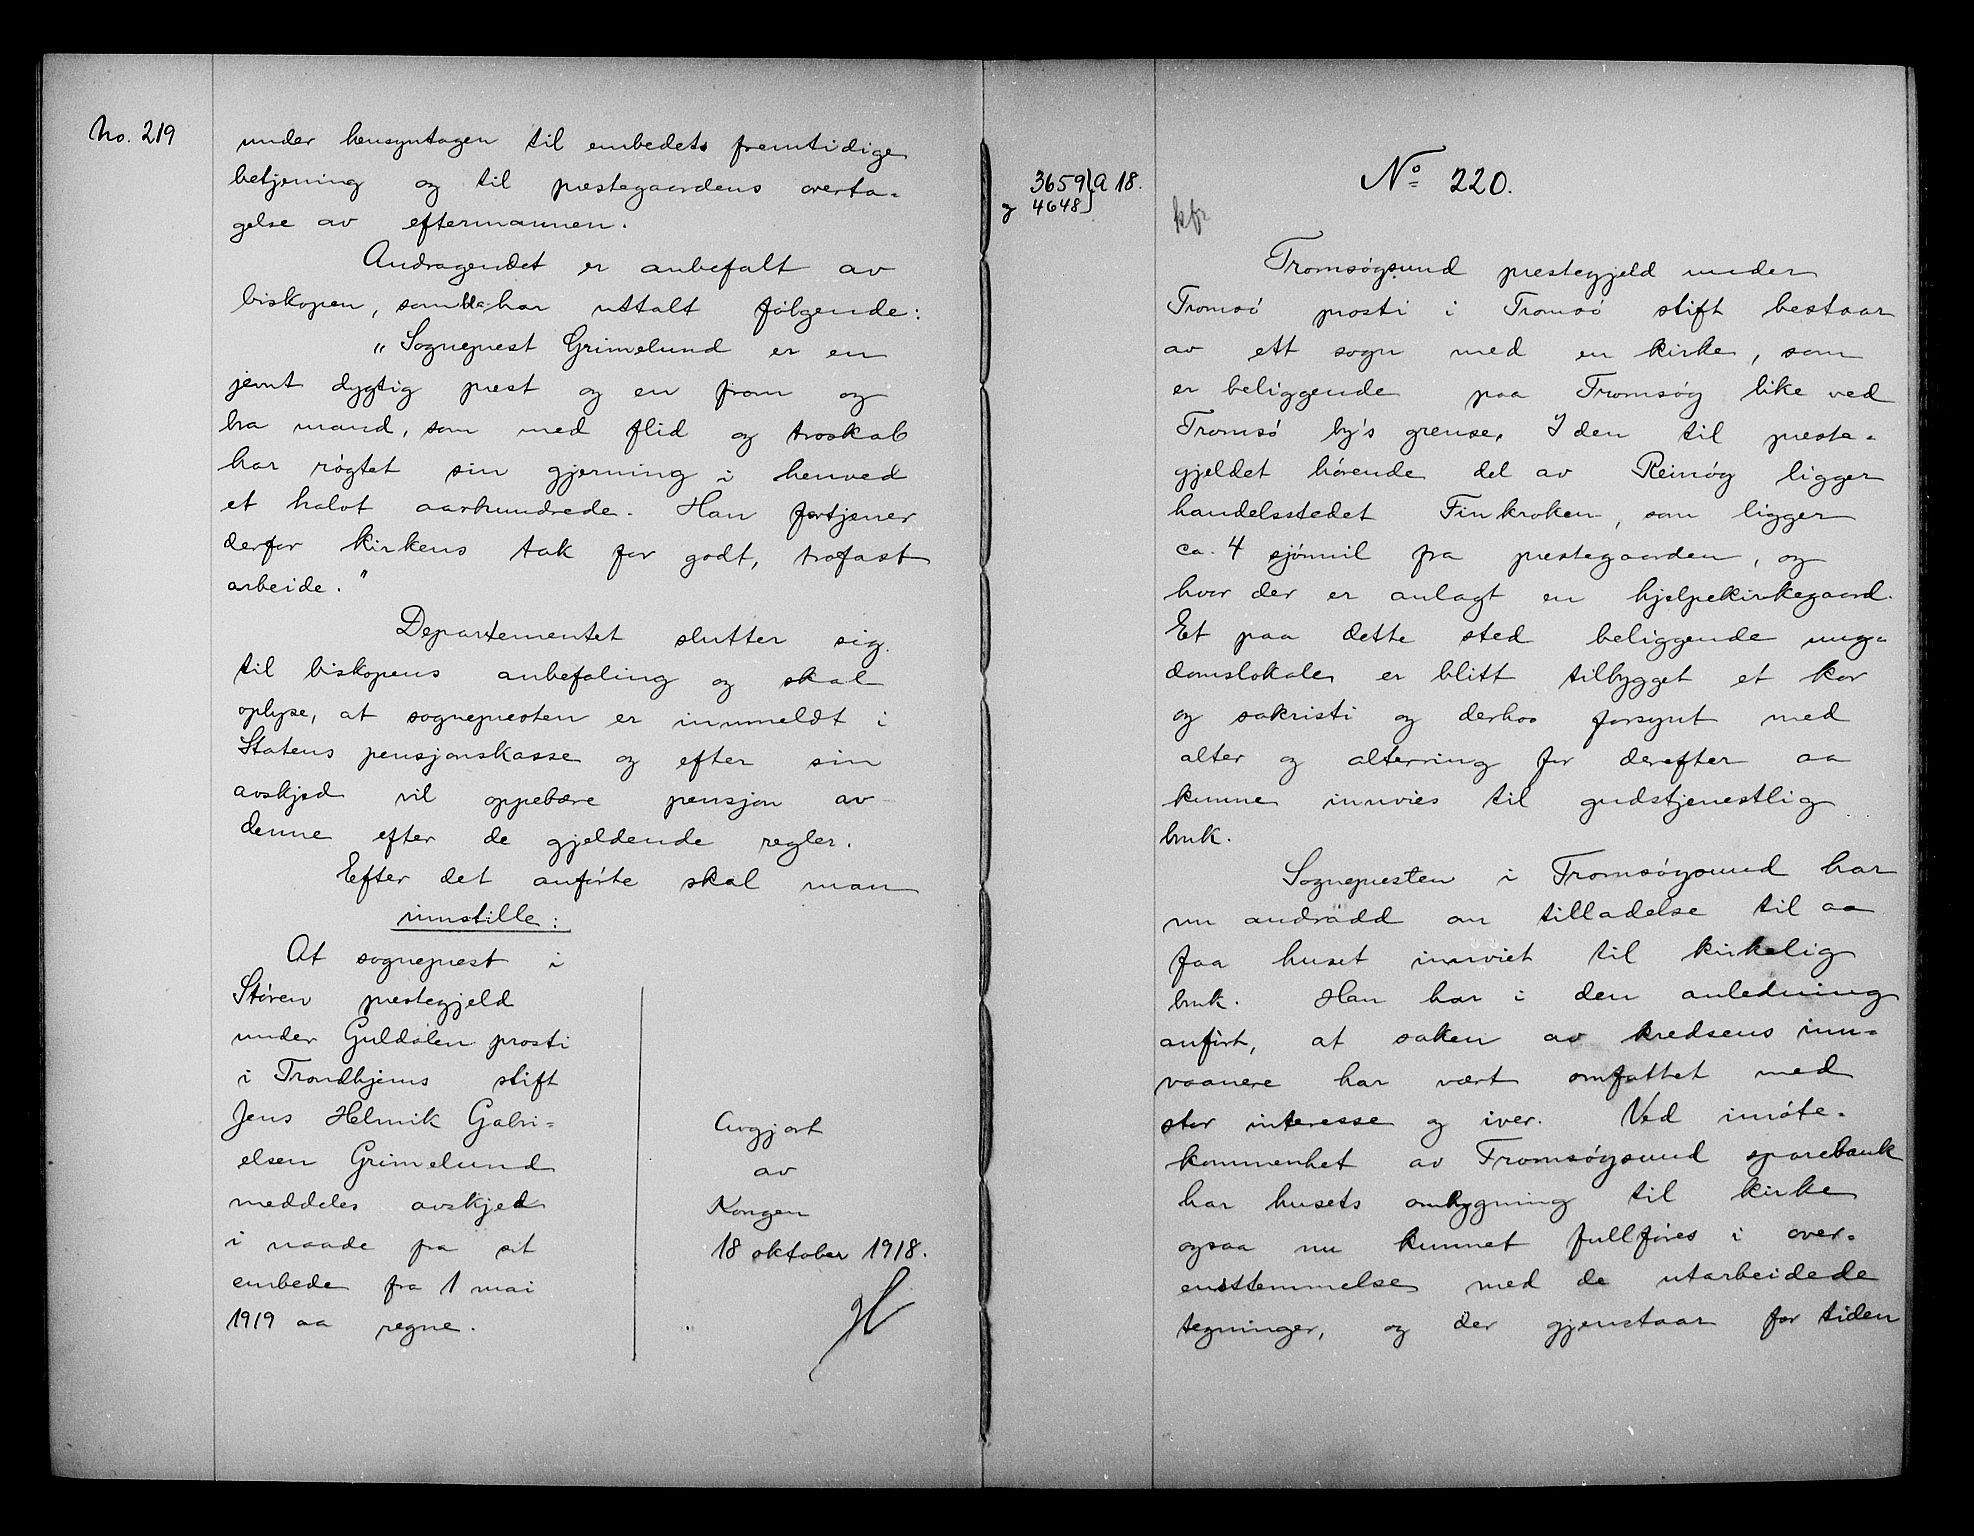 No. 219
under hensyntagen til embedets fremtidige
betjening og til prestegaardens overta-
gelse av eftermannen.
Andragendet er anbefalt av
biskopen, som bl.a. har uttalt følgende:
"Sogneprest Grimelund er en
jevnt dygtig prest og en from og
bra mand, som med flid og troskab
har røgtet sin gjerning i henved
et halvt aarhundrede. Han fortjener
derfor kirkens tak for godt, trofast
arbeide."
Departementet slutter sig
til biskopens anbefaling og skal
oplyse, at sognepresten er innmeldt i
Statens pensjonskasse og efter sin
avskjed vil oppebære pensjon av
denne efter de gjeldende regler.
Efter det anførte skal man
innstille:
At sogneprest i
Støren prestegjeld
under Guldalen prosti
i Trondhjems stift
Jens Helmik Gabri-
elsen Grimelund
meddeles avskjed
i naade fra sit
embede fra 1 mai
1919 aa regne.
Avgjort
av
Kongen
18 oktober 1918.
3659 } A 18.
og 4648
No 220.
kfr
Tromsøysund prestegjeld under
Tromsø prosti i Tromsø stift bestaar
av ett sogn med en kirke, som
er beliggende paa Tromsøy like ved
Tromsø by's grense. I den til preste-
gjeldet hørende del av Reinøy ligger
handelsstedet Finkroken, som ligger
ca. 4 sjømil fra prestegaarden, og
hvor der er anlagt en hjelpekirkegaard.
Et paa dette sted beliggende ung-
domslokale er blitt tilbygget et kor
og sakristi og derhos forsynt med
alter og alterring for derefter aa
kunne innvies til gudstjenestlig
bruk.
Sognepresten i Tromsøysund har
nu andradd om tilladelse til aa
faa huset innviet til kirkelig
bruk. Han har i den anledning
anført, at saken av kredsens inn-
vaanere har vært omfattet med
stor interesse og iver. Ved imøte-
kommenhet av Tromsøysund sparebank
har husets ombygning til kirke
ogsaa nu kunnet fullføres i over-
ensstemmelse med de utarbeidede
tegninger, og der gjenstaar for tiden